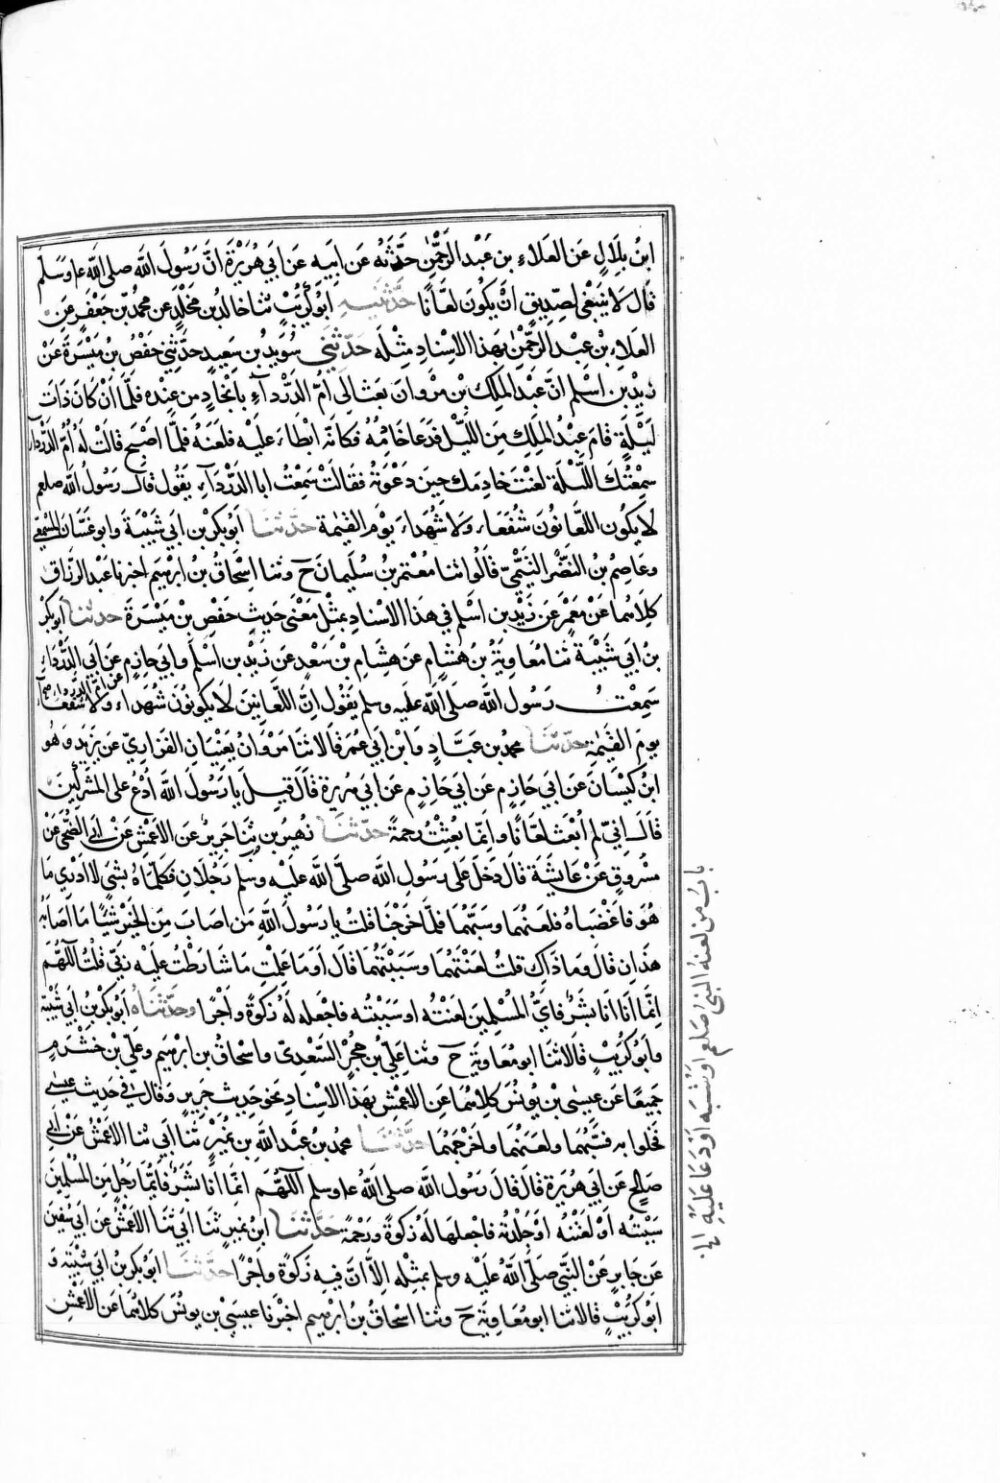 ابنُ بِلَالٍ عَنِ العَلَاءِ بنِ عَبْدِ الرَّحْمٰنِ حَدَّثَهُ عَن اَبِيهِ عَن اَبي هُرَيْرَةَ اَنَّ رَسُولَ اللهِ صلى الله عليه وَسَلَّم
قَالَ لَا يَنبَغِي لِصِدِّيقٍ اَنْ يَكُونَ لَعَّانًا حَدَّثَنِيهِ ابوكُرَيْبٍ ثنا خالدُ بن مَخْلَدٍ عن محمد بْنِ جَعْفَرٍ عَنِ
العَلَاءِ بن عبد الرحمٰن بهَذا الاسْنادِ مِثْلَه حَدَّثَنِي سُوَيْدُ بن سَعِيدٍ حَدَّثني حَفْصُ بن مَيْسَرَةَ عَنْ
زَيْدِ بن اسْلم انَّ عَبْدَ المَلِكِ بن مَرْوَانَ بَعَثَ الى اُمِّ الدَّرْدآءِ بِاَنجَادٍ مِن عِنْدِه فَلَمَّا اَنْ كَانَ ذَاتَ
لَيْلَةٍ قامَ عَبْدُ المَلِكِ مِنَ اللَّيْلِ فَدَعَا خَادِمَهُ فَكَانَّه ابْطَاءَ عَلَيْه فَلَعَنَهُ فَلَمَّا اَصْبَحَ قَالَتْ لَهُ اُمُّ الدَّرْدآء
سَمِعْتُكَ اللَّيْلَةَ لَعَنْتَ خادِمَكَ حِينَ دَعَوْتَهُ فَقَالَتْ سَمِعْتُ ابا الدَّرْدَآءِ يَقُولُ قالَ رسُولُ اللهِ صلعم
لَا يَكُونُ اللَّعَّانُونَ شُفَعَاءَ وَلَا شُهَدَاءَ يَوْمَ القِيٰمَةِ حَدَّثَنَا ابوبَكْر بْنُ اَبي شَيْبَةَ وابوغسَّانَ المِسْمَعِي
وعَاصِمُ بن النَّضْرِ التَّيْمِيُّ قَالُوا ثنا مُعْتَمِرُ بن سُلَيمانَ ح وثنا اسْحَاقُ بنُ ابرهيم اخبرنا عَبْدُ الرزاق
كِلَاهُما عَنْ مَعْمَرٍ عَن زَيْدِ بن اسْلَم في هَذا الاسْنادِ بِمثْلِ مَعْنَى حَدِيثِ حَفْصِ بن مَيْسَرَةَ حدثنا ابوبَكْرِ
بن ابي شَيْبَة ثنا مُعَاوِيَةُ بْنُ هِشَامٍ عن هِشَامِ بْنِ سَعْدٍ عَن زَيْدِ بن اسْلَم وابي حَازِمٍ عن اُمِّ الدَّرْدَاءِ عَن اَبي الدَّرْدَاءِ
سَمِعْتُ رَسُولَ الله صَلَّى اللهُ عَلَيه وسلم يَقُولُ اِنَّ اللَّعَّانِينَ لَا يَكُونُونَ شُهَدَاءَ ولا شُفَعاءَ
يومَ القِيٰمَةِ حَدَّثنا محمد بن عبَّادٍ وابْنُ ابي عُمَرَ قَالَا ثنا مَرْوَانُ يَعْنِيَانِ الفَزَارِيَّ عَنْ يَزِيدَ وَهُوَ
ابنُ كَيْسَانَ عَن ابي حَازِمٍ عَن ابي حَازِمٍ عَن ابي هُرَيرة قَالَ قِيلَ يا رَسُولَ اللهِ اُدْعُ عَلى المُشْرِكينَ
قَالَ اِنِّي لم اُبْعَث لَعَّانًا وانَّما بُعِثْتُ رحمةً حَدَّثنا زُهَيرُ بن ثنا جَرِيرٌ عَنِ الاعْمَشِ عَن ابي الضُّحى عَن
مَسْرُوقٍ عَنْ عَايِشَةَ قَالَ دَخَلَ عَلى رَسُولِ اللهِ صَلَّى اللهُ عَلَيْه وسلم رَجُلَانِ فَكَلَّمَاهُ بشَيْءٍ لا اَدْرِي مَا
هُوَ فَاَغْضَبَاهُ فَلَعَنَهُما وسَبَّهُما فَلَمَّا خَرَجَا قلتُ يا رسُولَ اللهِ مَن اصَابَ مِنَ الخَيْرِ شَيْئًا مَا اَصَابَهُ
هذَانِ قَالَ وَمَا ذَاكِ قلتُ لَعَنْتَهُما وسَبَبْتَهُما قَالَ اَوَمَا عَلِمْتِ مَا شَارَطْتُ عَلَيْهِ رَبِّي قُلْتُ اَللّٰهُمَّ
اِنَّمَا اَنَا انَا بَشَرٌ فَاَيُّ المُسْلِمِينَ لَعَنْتُه او سَبَبْتُه فاجْعَله لَهُ زَكٰوةً واَجْرًا وحَدَّثَنَاهُ ابُوبَكْرِ بْنُ ابي شَيْبَة
وابوُ كُرَيْبٍ قَالَا ثَنَا ابومُعَاوِيَةَ ح وثنا عَلِيُّ بنُ حُجْرٍ السَّعْدِيّ واسْحاقُ بن ابرهيم وعَلِيُّ بْنُ خَشْرَمٍ
جَمِيعًا عَن عِيسَى بن يُونُسَ كِلاهُمَا عَنِ الاعْمَشِ بهَذا الاسْنادِ نَحْوَ حَدِيثِ جَرِيرٍ وَقَالَ في حَدِيثِ عيسى
فَخَلَوا به فَسَبَّهُمَا ولَعَنَهُما واَخْرَجَهُمَا حَدَّثنَا محمد بن عَبْدِ اللهِ بن نُمَيْرٍ ثنا ابي ثنا الاعْمَشُ عَنْ اَبي
صَالِحٍ عَن ابي هُرَيرة قَالَ قَالَ رَسُولُ الله صلى اللهُ عليه وسلم اللّٰهُمَّ انَّما اَنَا بَشَرٌ فاَيُّما رَجُلٍ مِنَ المُسْلِمِينَ
سَبَبْتُه اَوْ لَعَنْتُهُ اَوْ جَلَدْتُه فَاجْعَلها لَهُ زَكٰوةً وَرَحْمَةً حَدَّثَنَا ابنُ نميرٍ ثنا ابي ثنا الاعْمَشُ عَن ابي سُفْيٰنَ
عَن جَابِرٍ عَنِ النَّبيّ صَلَّى اللهُ عَلَيْهِ وسلم بمثلِه اِلاَّ انَّ فِيهِ زَكٰوةً واَجْرًا حَدَّثنَا ابوبكر بن ابي شَيْبَة وَ
ابوكُرَيْبٍ قَالا ثنا ابومُعَاوِيَةَ ح وثنا اسْحَاقُ بن ابرهيم اخبَرنَا عيسَى بن يونُسَ كلاهُما عَنِ الاعْمَشِ
بابُ من لعنهُ النبي صَلعم اَوْ سَبَّه اَوْ دَعَا عَلَيْهِ